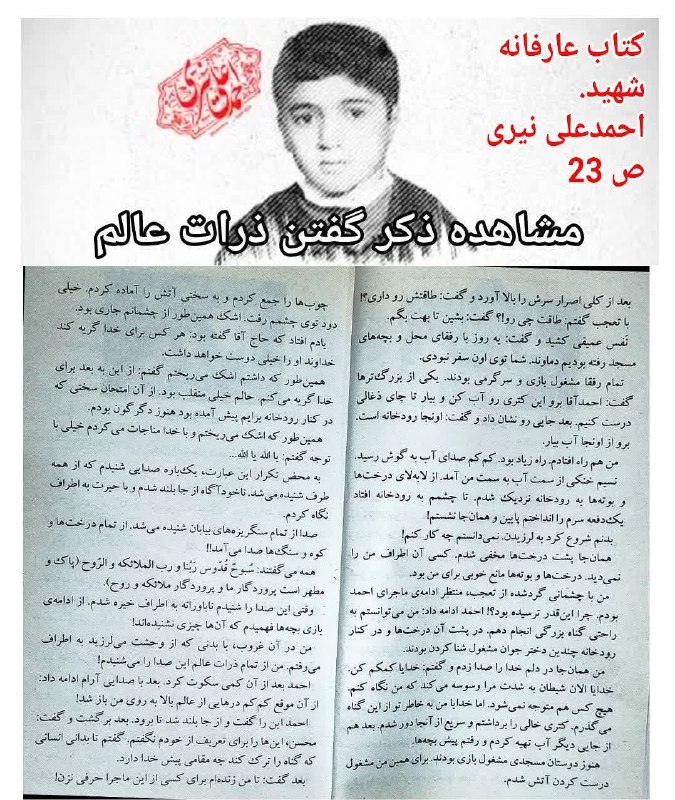 کتاب عارفانه
شهید.
احمدعلی نیری
ص 23
مشاهده ذکر گفتن ذرات عالم
بعد از کلی اصرار سرش را بالا آورد و گفت: طاقتش رو داری؟!
با تعجب گفتم: طاقت چی رو!؟ گفت: بشین تا بهت بگم.
نَفس عمیقی کشید و گفت: یه روز با رفقای محل و بچه‌های
مسجد رفته بودیم دماوند. شما توی اون سفر نبودی.
تمام رفقا مشغول بازی و سرگرمی بودند. یکی از بزرگ‌ترها
گفت: احمدآقا برو این کتری رو آب کن و بیار تا چای ذغالی
درست کنیم. بعد جایی رو نشان داد و گفت: اونجا رودخانه است.
برو از اونجا آب بیار.
من هم راه افتادم. راه زیاد بود. کم کم صدای آب به گوش رسید.
نسیم خنکی از سمت آب به سمت من آمد. از لابه‌لای درخت‌ها
و بوته‌ها به رودخانه نزدیک شدم. تا چشمم به رودخانه افتاد
یک‌دفعه سرم را انداختم پایین و همان‌جا نشستم!
بدنم شروع کرد به لرزیدن. نمی‌دانستم چه کار کنم!
همان‌جا پشت درخت‌ها مخفی شدم. کسی آن اطراف من را
نمی‌دید. درخت‌ها و بوته‌ها مانع خوبی برای من بود.
من با چشمانی گردشده از تعجب، منتظر ادامه‌ی ماجرای احمد
بودم. چرا این‌قدر ترسیده بود؟! احمد ادامه داد: من می‌توانستم به
راحتی گناه بزرگی انجام دهم. در پشت آن درخت‌ها و در کنار
رودخانه چندین دختر جوان مشغول شنا کردن بودند.
من همان‌جا در دلم خدا را صدا زدم و گفتم: خدایا کمکم کن.
خدایا الان شیطان به شدت مرا وسوسه می‌کند که من نگاه کنم.
هیچ کس هم متوجه نمی‌شود. اما خدایا من به خاطر تو از این گناه
می‌گذرم. کتری خالی را برداشتم و سریع از آنجا دور شدم. بعد هم
از جایی دیگر آب تهیه کردم و رفتم پیش بچه‌ها.
هنوز دوستان مسجدی مشغول بازی بودند. برای همین من مشغول
درست کردن آتش شدم.
چوب‌ها را جمع کردم و به سختی آتش را آماده کردم. خیلی
دود توی چشمم رفت. اشک همین‌طور از چشمانم جاری بود.
یادم افتاد که حاج آقا گفته بود: هر کس برای خدا گریه کند
خداوند او را خیلی دوست خواهد داشت.
همین‌طور که داشتم اشک می‌ریختم گفتم: از این به بعد برای
خدا گریه می‌کنم. حالم خیلی منقلب بود. از آن امتحان سختی که
در کنار رودخانه برایم پیش آمده بود هنوز دگرگون بودم.
همین‌طور که اشک می‌ریختم و با خدا مناجات می‌کردم خیلی با
توجه گفتم: یا الله یا الله...
به محض تکرار این عبارت، یک‌باره صدایی شنیدم که از همه
طرف شنیده می‌شد. ناخودآگاه از جا بلند شدم و با حیرت به اطراف
نگاه کردم.
صدا از تمام سنگریزه‌های بیابان شنیده می‌شد. از تمام درخت‌ها و
کوه و سنگ‌ها صدا می‌آمد!!
همه می‌گفتند: سُبوحٌ قُدّوس رَبُّنا و رب الملائکه و الرّوح (پاک و
مطهر است پروردگار ما و پروردگار ملائکه و روح).
وقتی این صدا را شنیدم ناباورانه به اطراف خیره شدم. از ادامه‌ی
بازی بچه‌ها فهمیدم که آن‌ها چیزی نشنیده‌اند!
من در آن غروب، با بدنی که از وحشت می‌لرزید به اطراف
می‌رفتم. من از تمام ذرات عالم این صدا را می‌شنیدم!
احمد بعد از آن کمی سکوت کرد. بعد با صدایی آرام ادامه داد:
از آن موقع کم‌کم درهایی از عالم بالا به روی من باز شد!
احمد این را گفت و از جا بلند شد تا برود. بعد برگشت و گفت:
محسن، این‌ها را برای تعریف از خودم نگفتم. گفتم تا بدانی انسانی
که گناه را ترک کند چه مقامی پیش خدا دارد.
بعد گفت: تا من زنده‌ام برای کسی از این ماجرا حرفی نزن!